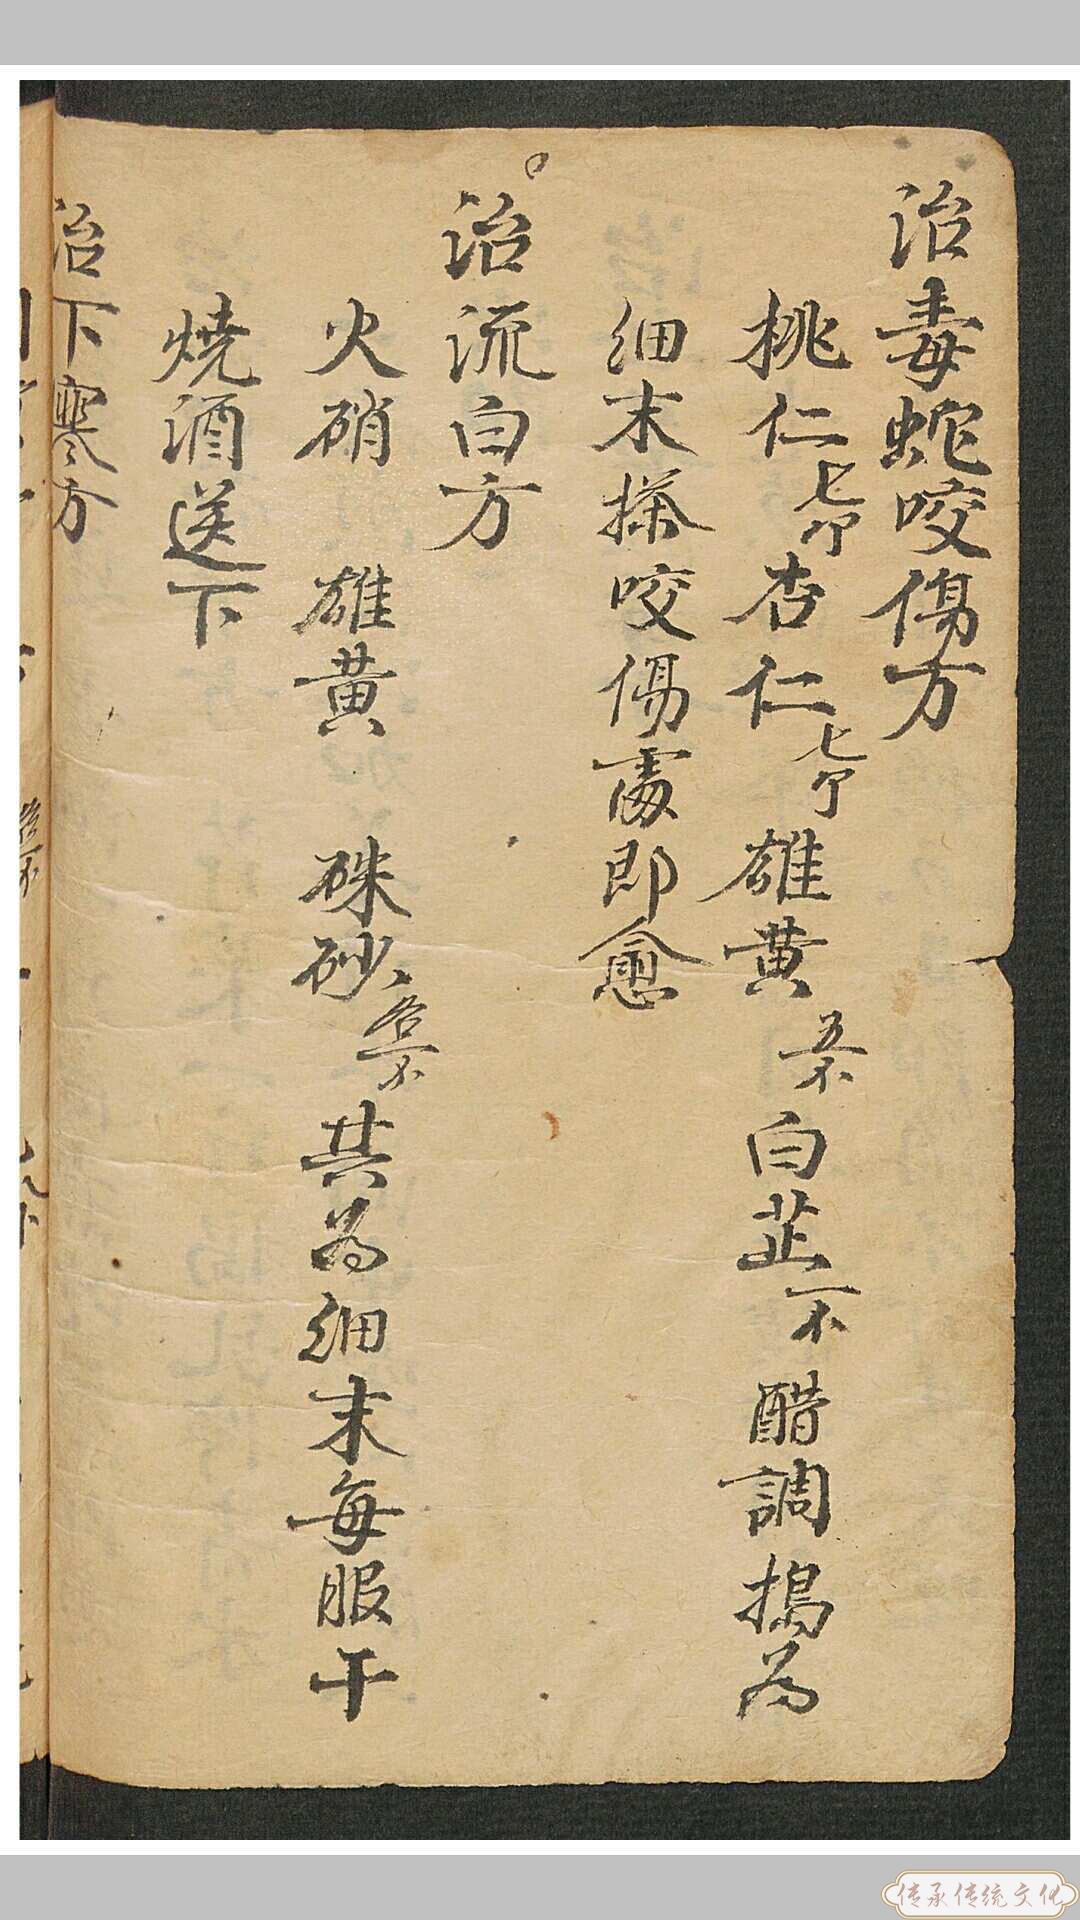 治毒蛇咬傷方
桃仁七个杏仁七个雄黄五不白芷一不醋調搗為
细末搽咬傷處即愈
治流白方
火硝 雄黄 硃砂各一不共為细末每服一
燒酒送下
治下寒方
传承传统文化